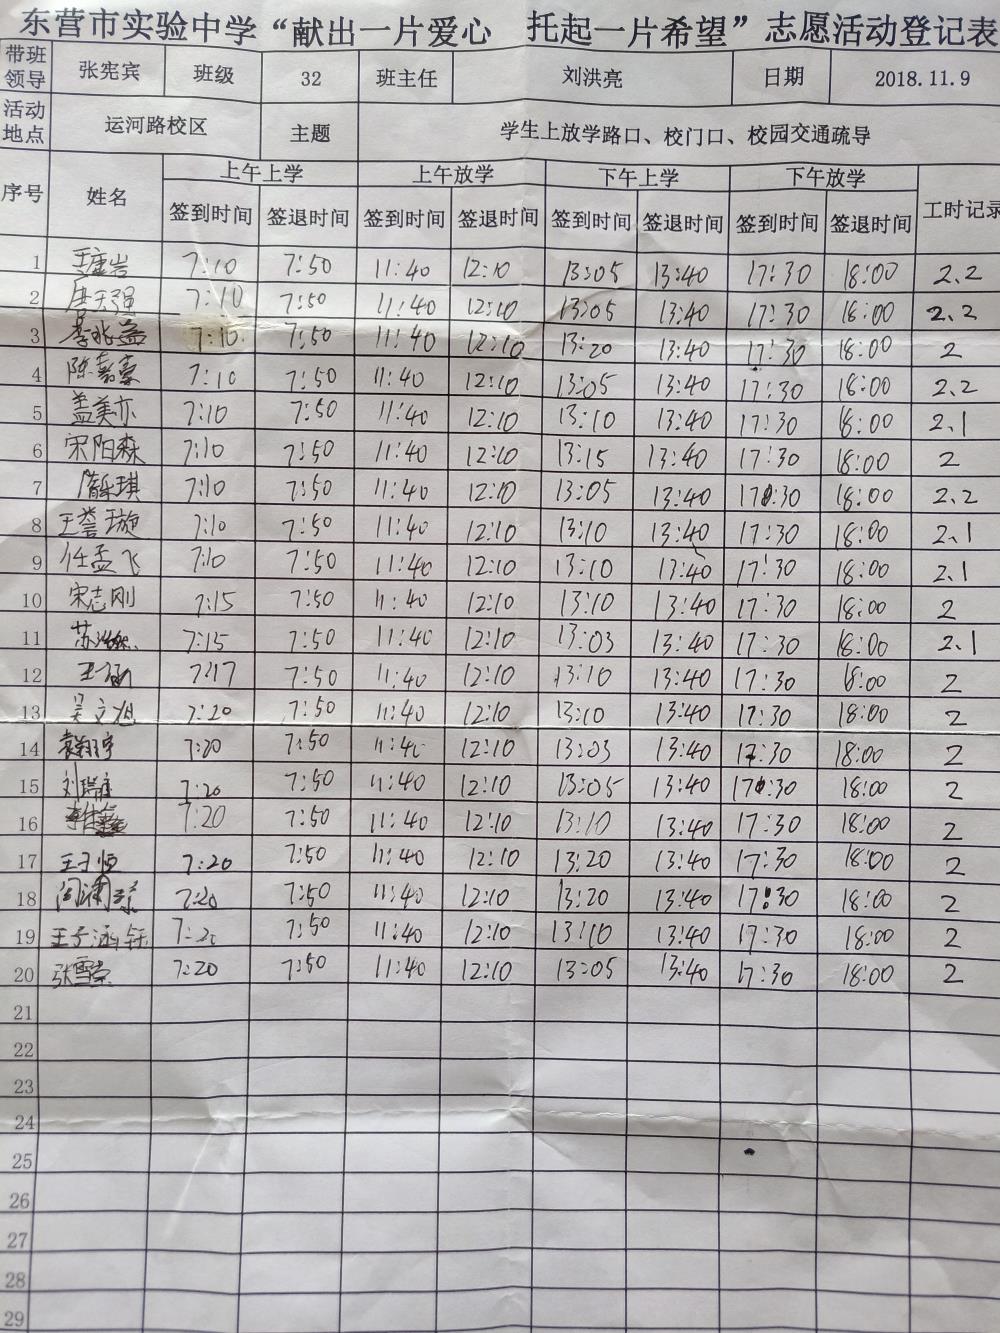 东营市实验中学“献出一片爱心 托起一片希望”志愿活动登记表
带班领导 张宪宾 班级 32 班主任 刘洪亮 日期 2018.11.9
活动地点 运河路校区 主题 学生上放学路口、校门口、校园交通疏导
序号 姓名 上午上学 上午放学 下午上学 下午放学 工时记录
签到时间 签退时间 签到时间 签退时间 签到时间 签退时间 签到时间 签退时间
1 7:10 7:50 11:40 12:10 13:05 13:40 17:30 18:00 2.2
2 7:10 7:50 11:40 12:10 13:05 13:40 17:30 18:00 2.2
3 李兆益 7:10 7:50 11:40 12:10 13:20 13:40 17:30 18:00 2
4 陈嘉豪 7:10 7:50 11:40 12:10 13:05 13:40 17:30 18:00 2.2
5 盖美亦 7:10 7:50 11:40 12:10 13:10 13:40 17:30 18:00 2.1
6 宋阳森 7:10 7:50 11:40 12:10 13:15 13:40 17:30 18:00 2
7 7:10 7:50 11:40 12:10 13:05 13:40 17:30 18:00 2.2
8 王誉璇 7:10 7:50 11:40 12:10 13:10 13:40 17:30 18:00 2.1
9 任孟飞 7:10 7:50 11:40 12:10 13:10 13:40 17:30 18:00 2.1
10 宋志刚 7:15 7:50 11:40 12:10 13:10 13:40 17:30 18:00 2
11 7:15 7:50 11:40 12:10 13:03 13:40 17:30 18:00 2.1
12 7:17 7:50 11:40 12:10 13:10 13:40 17:30 18:00 2
13 吴文旭 7:20 7:50 11:40 12:10 13:10 13:40 17:30 18:00 2
14 7:20 7:50 11:40 12:10 13:03 13:40 17:30 18:00 2
15 7:20 7:50 11:40 12:10 13:05 13:40 17:30 18:00 2
16 7:20 7:50 11:40 12:10 13:10 13:40 17:30 18:00 2
17 王子恒 7:20 7:50 11:40 12:10 13:20 13:40 17:30 18:00 2
18 7:20 7:50 11:40 12:10 13:20 13:40 17:30 18:00 2
19 王子涵钰 7:20 7:50 11:40 12:10 13:10 13:40 17:30 18:00 2
20 7:20 7:50 11:40 12:10 13:05 13:40 17:30 18:00 2
21
22
23
24
25
26
27
28
29